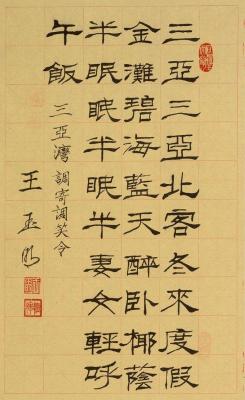 三亞三亞北客冬來度假
金灘碧海藍天醉臥椰蔭
半眠眠半眠半妻女輕呼
午飯
三亞灣 調寄調笑令
王